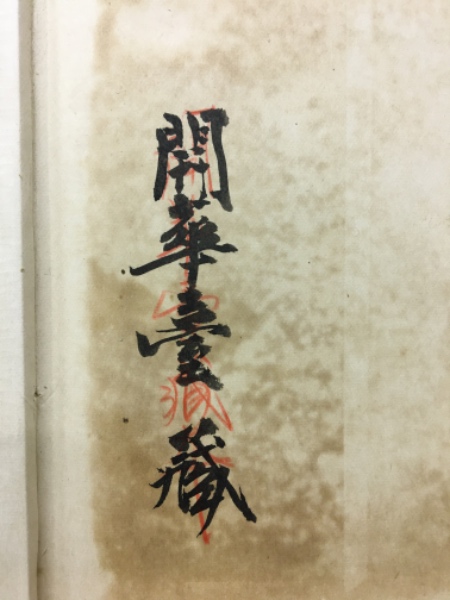 開華臺藏